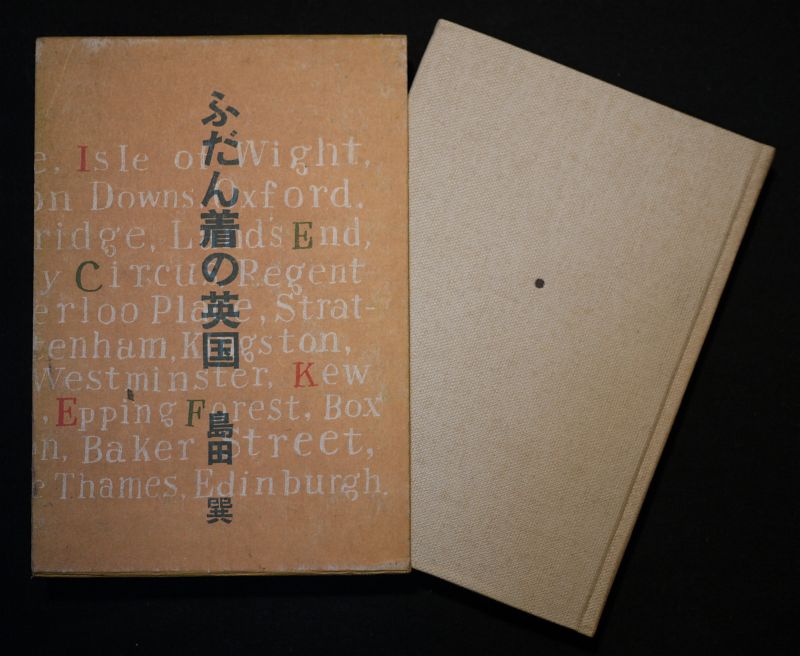 ふだん着の英国
島田 巽
e, Isle of Wight,
on Downs, Oxford,
ridge, Lands End,
y Circus, Regent
erloo Place, Strat-
tenham, Kingston,
Westminster, Kew
, Epping Forest, Box
en, Baker Street,
e Thames, Edinburgh.